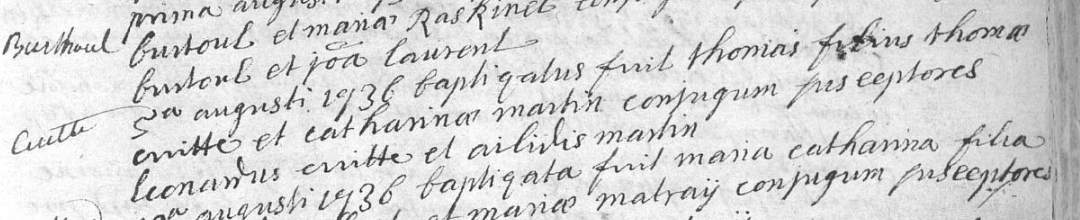 prima augusti
Burthoul burtoul et mariæ Raskinet
burtoul et joã laurent
Cuitte 5a augusti 1736 baptizatus fuit thomas filius thomæ
cuitte et catharinæ martin conjugum suseeptores
leonardus cuitte et ailidis martin
augusti 1736 baptizata fuit maria catharina filia
et mariæ matraÿ conjugum suseeptores